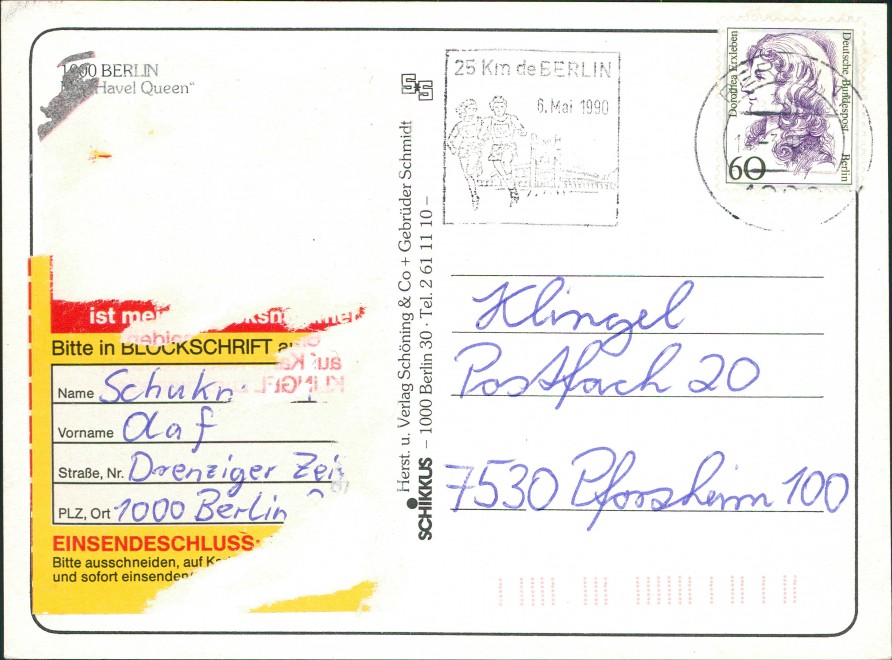 1000 BERLIN
Havel Queen“
ist mei
Bitte in BLOCKSCHRIFT au
Name Schukn
Vorname Olaf
Straße, Nr. Drenziger Zei
PLZ, Ort 1000 Berlin
EINSENDESCHLUSS:
Bitte ausschneiden, auf Ka
und sofort einsenden
Herst. u. Verlag Schöning & Co + Gebrüder Schmidt
SCHIKKUS – 1000 Berlin 30 · Tel. 2 61 11 10 –
25 Km de BERLIN
6. Mai 1990
Dorothea Erxleben
Deutsche Bundespost Berlin
60
Klingel
Postfach 20
7530 Pforzheim 100